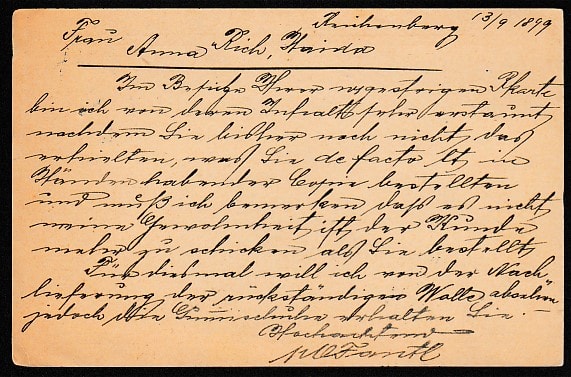 Reichenberg 13/9 1899
Frau
Anna Rich, Haida
Im Besitze Ihrer vgestrigen Pkarte
bin ich von deren Inhalt sehr erstaunt
nachdem Sie bisher noch nicht das
erhielten, was Sie de facto lt in
Händen habender Copie bestellten
und muß ich bemerken daß es nicht
meine Gewohnheit ist der Kunde
mehr zu schicken als Sie bestellt
Für diesmal will ich von der Nach
lieferung der rückständigen Wolle absehen
jedoch die Gummischuhe erhalten Sie. —
Hochachtend